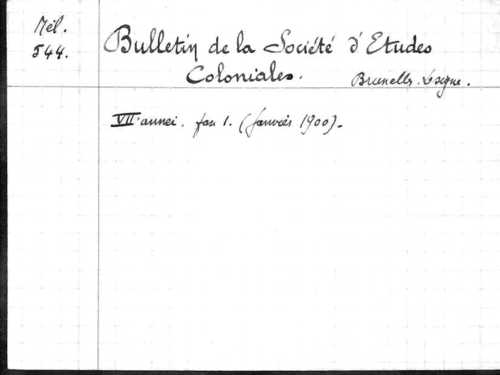 Mél.
544.
Bulletin de la Société d'Etudes
Coloniales.
Bruxelles. Lesigne.
VIIe année. fasc 1. (Janvier 1900).